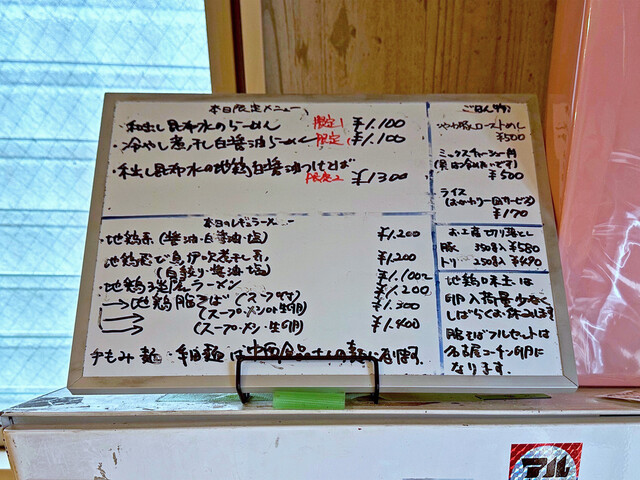 本日限定メニュー
・和出し昆布水のらーめん 限定1 ¥1.100
・冷やし煮干し白醤油らーめん 限定1 ¥1.100
・和出し昆布水の地鶏白醤油つけそば
限定2 ¥1300
本日のレギュラーメニュー
・地鶏系(醤油・白醤油・塩) ¥1.200
伊吹煮干し系 ¥1200
(白絞り・醤油・塩) ¥1.100
・地鶏 ラーメン ¥1.200
→地鶏脂そば(スープ付) ¥1.300
(スープ・メン・生卵)
(スープ・メン・生卵) ¥1.400
手もみ麺・手曲麺は中西食品 の麺になります
ごはん物
やわ豚ローストめし
¥500
ミックスチャーシュー丼
¥500
ライス
(おかわり一回サービス)
¥170
お土産切り落とし
豚 350g入 ¥580
トリ 250g入 ¥490
地鶏味玉は
卵入荷量少なく
しばらくお休みします
脂そばフルセットは
名古屋コーチン卵に
なります.
アル